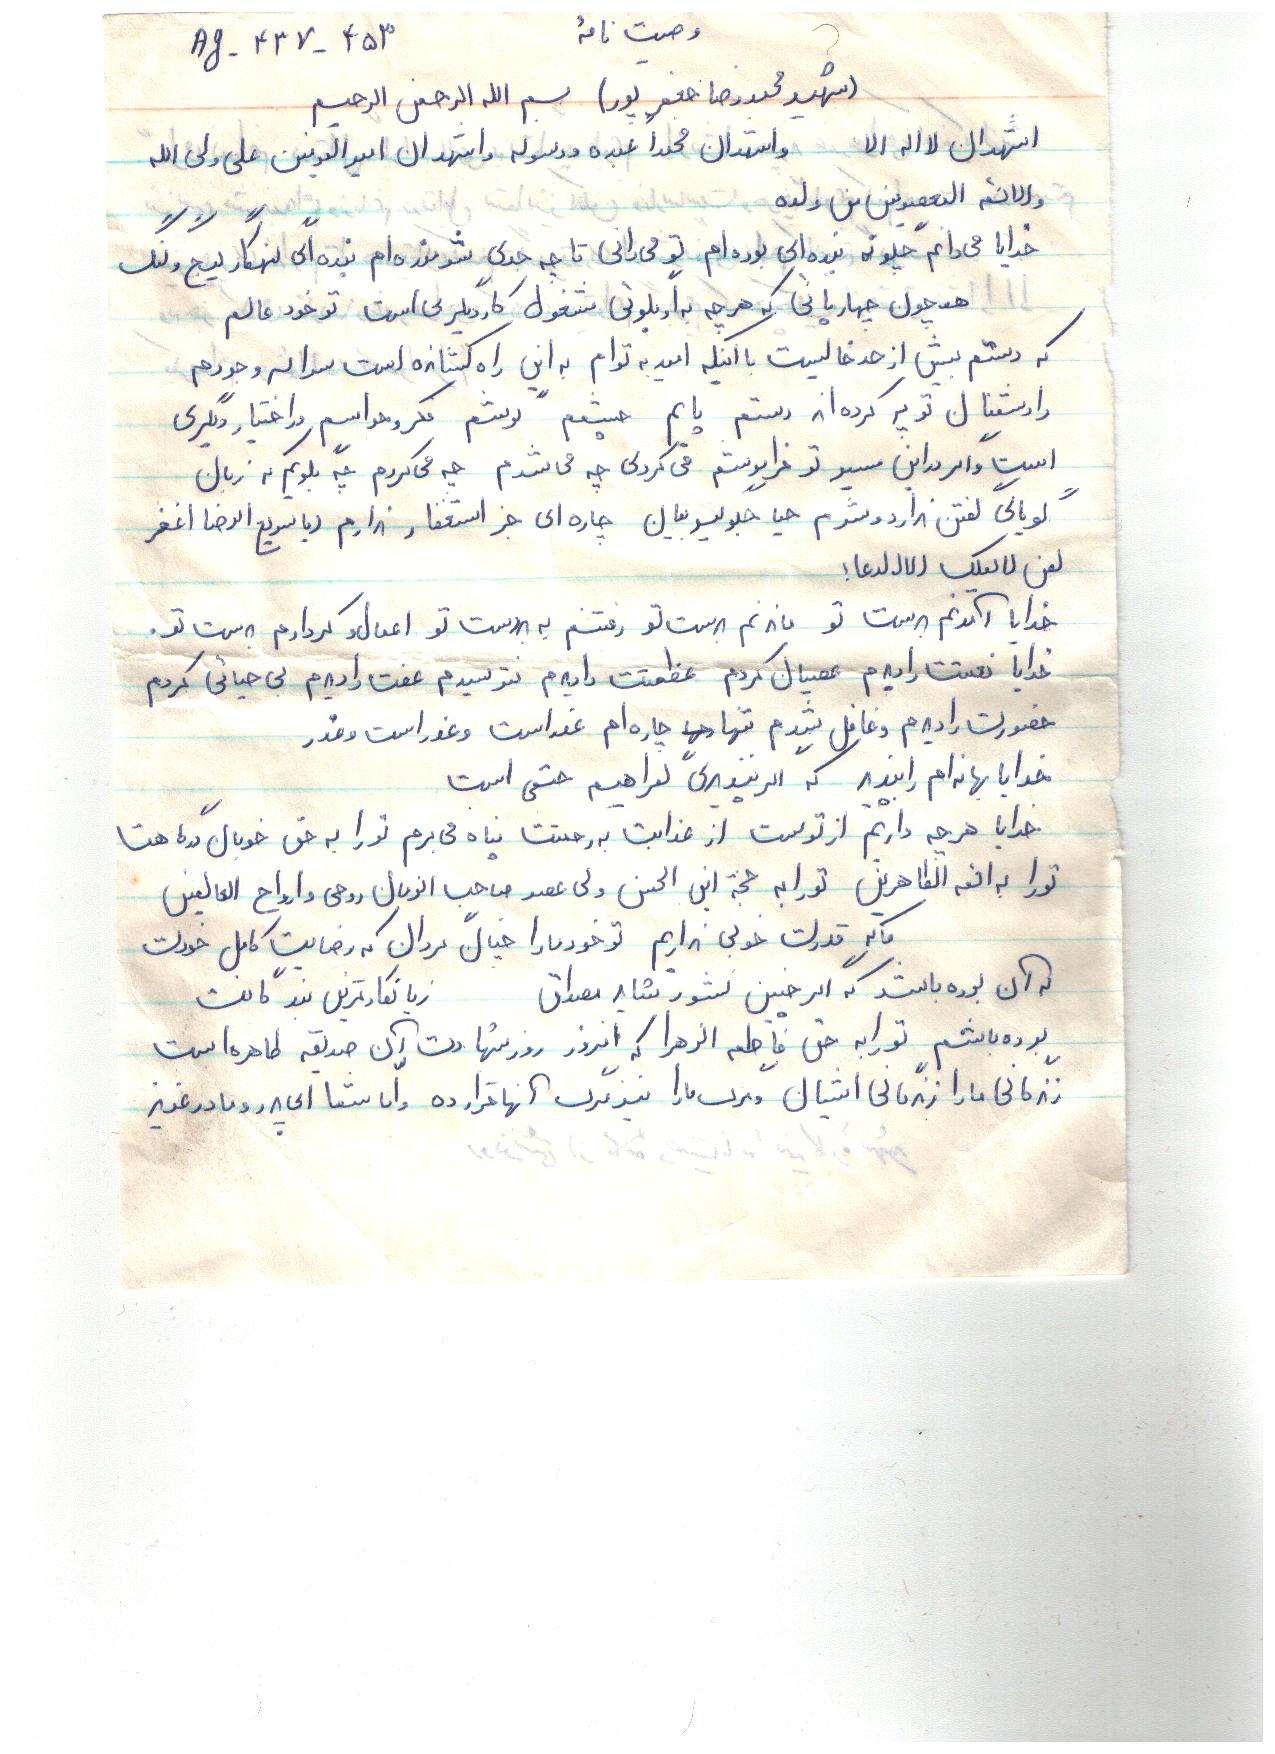 وصیت نامهٔ Ag - ۴۳۷ - ۴۵۳
(شهید محمدرضا جعفرپور) بسم الله الرحمن الرحیم
اشهد ان لا اله الا واشهد ان محمداً عبده ورسوله واشهد ان امیرالمومنین علی ولی الله
والائمه المعصومین من ولده
خدایا می دانم چگونه بنده ای بوده ام تو می دانی تا چه حدی شرمنده ام بنده ای گنهکار گیج و گنگ
همچون چهارپائی که هرچه به او بگوئی مشغول کار دیگری است تو خود عالم
که دستم بیش از حد خالیست با اینکه امید به توام به این راه کشانده است سراسر وجودم
را دشمنان تو پر کرده اند دستم پایم چشمم گوشم فکر و حواسم در اختیار دیگری
است و اگر در این مسیر تو فراموشم می کردی چه می شدم چه می کردم چه بگویم که زبان
گویائی گفتن ندارد و شرم حیا جلوگیر بیان چاره ای جز استغفار ندارم (یا سریع الرضا اغفر
لمن لا یملک الا الدعا)
خدایا آمدنم بدست تو ماندنم بدست تو رفتنم به بدست تو اعمال و کردارم بدست تو.
خدایا نعمتت را دیدم عصیان کردم عظمتت را دیدم نترسیدم عفت را دیدم بی حیائی کردم
حضورت را دیدم و غافل شدم تنها چاره ام عذر است و عذر است و عذر
خدایا بهانه ام را بپذیر که اگر نپذیری گمراهیم حتمی است
خدایا هرچه داریم از توست از عذابت به رحمتت پناه می برم تو را به حق خوبان درگاهت
تو را به ائمه الطاهرین تو را به حجة ابن الحسن ولی عصر صاحب الزمان روحی و ارواح العالمین
ما که قدرت خوبی نداریم تو خود ما را چنان گردان که رضایت کامل خودت
به آن بوده باشد که اگر چنین نشود شاید مصداق زیانکارترین بندگانت
بوده باشم تو را به حق فاطمه الزهرا که امروز روز شهادت آن صدیقه طاهره است
زندگانی ما را زندگانی ایشان و مرگ ما را نیز مرگ آنها قرار ده و اما شما ای پدر و مادر عزیز